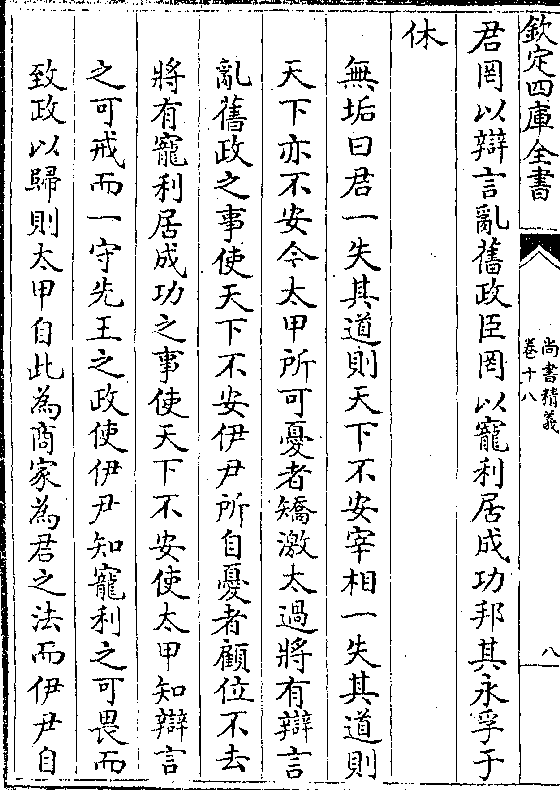 欽定四庫全書
尚書精義
卷十八
八
君罔以辯言亂舊政臣罔以寵利居成功邦其永孚于
休
無垢曰君一失其道則天下不安宰相一失其道則
天下亦不安今太甲所可憂者矯激太過將有辯言
亂舊政之事使天下不安伊尹所自憂者顧位不去
將有寵利居成功之事使天下不安使太甲知辯言
之可戒而一守先王之政使伊尹知寵利之可畏而
致政以歸則太甲自此為商家為君之法而伊尹自